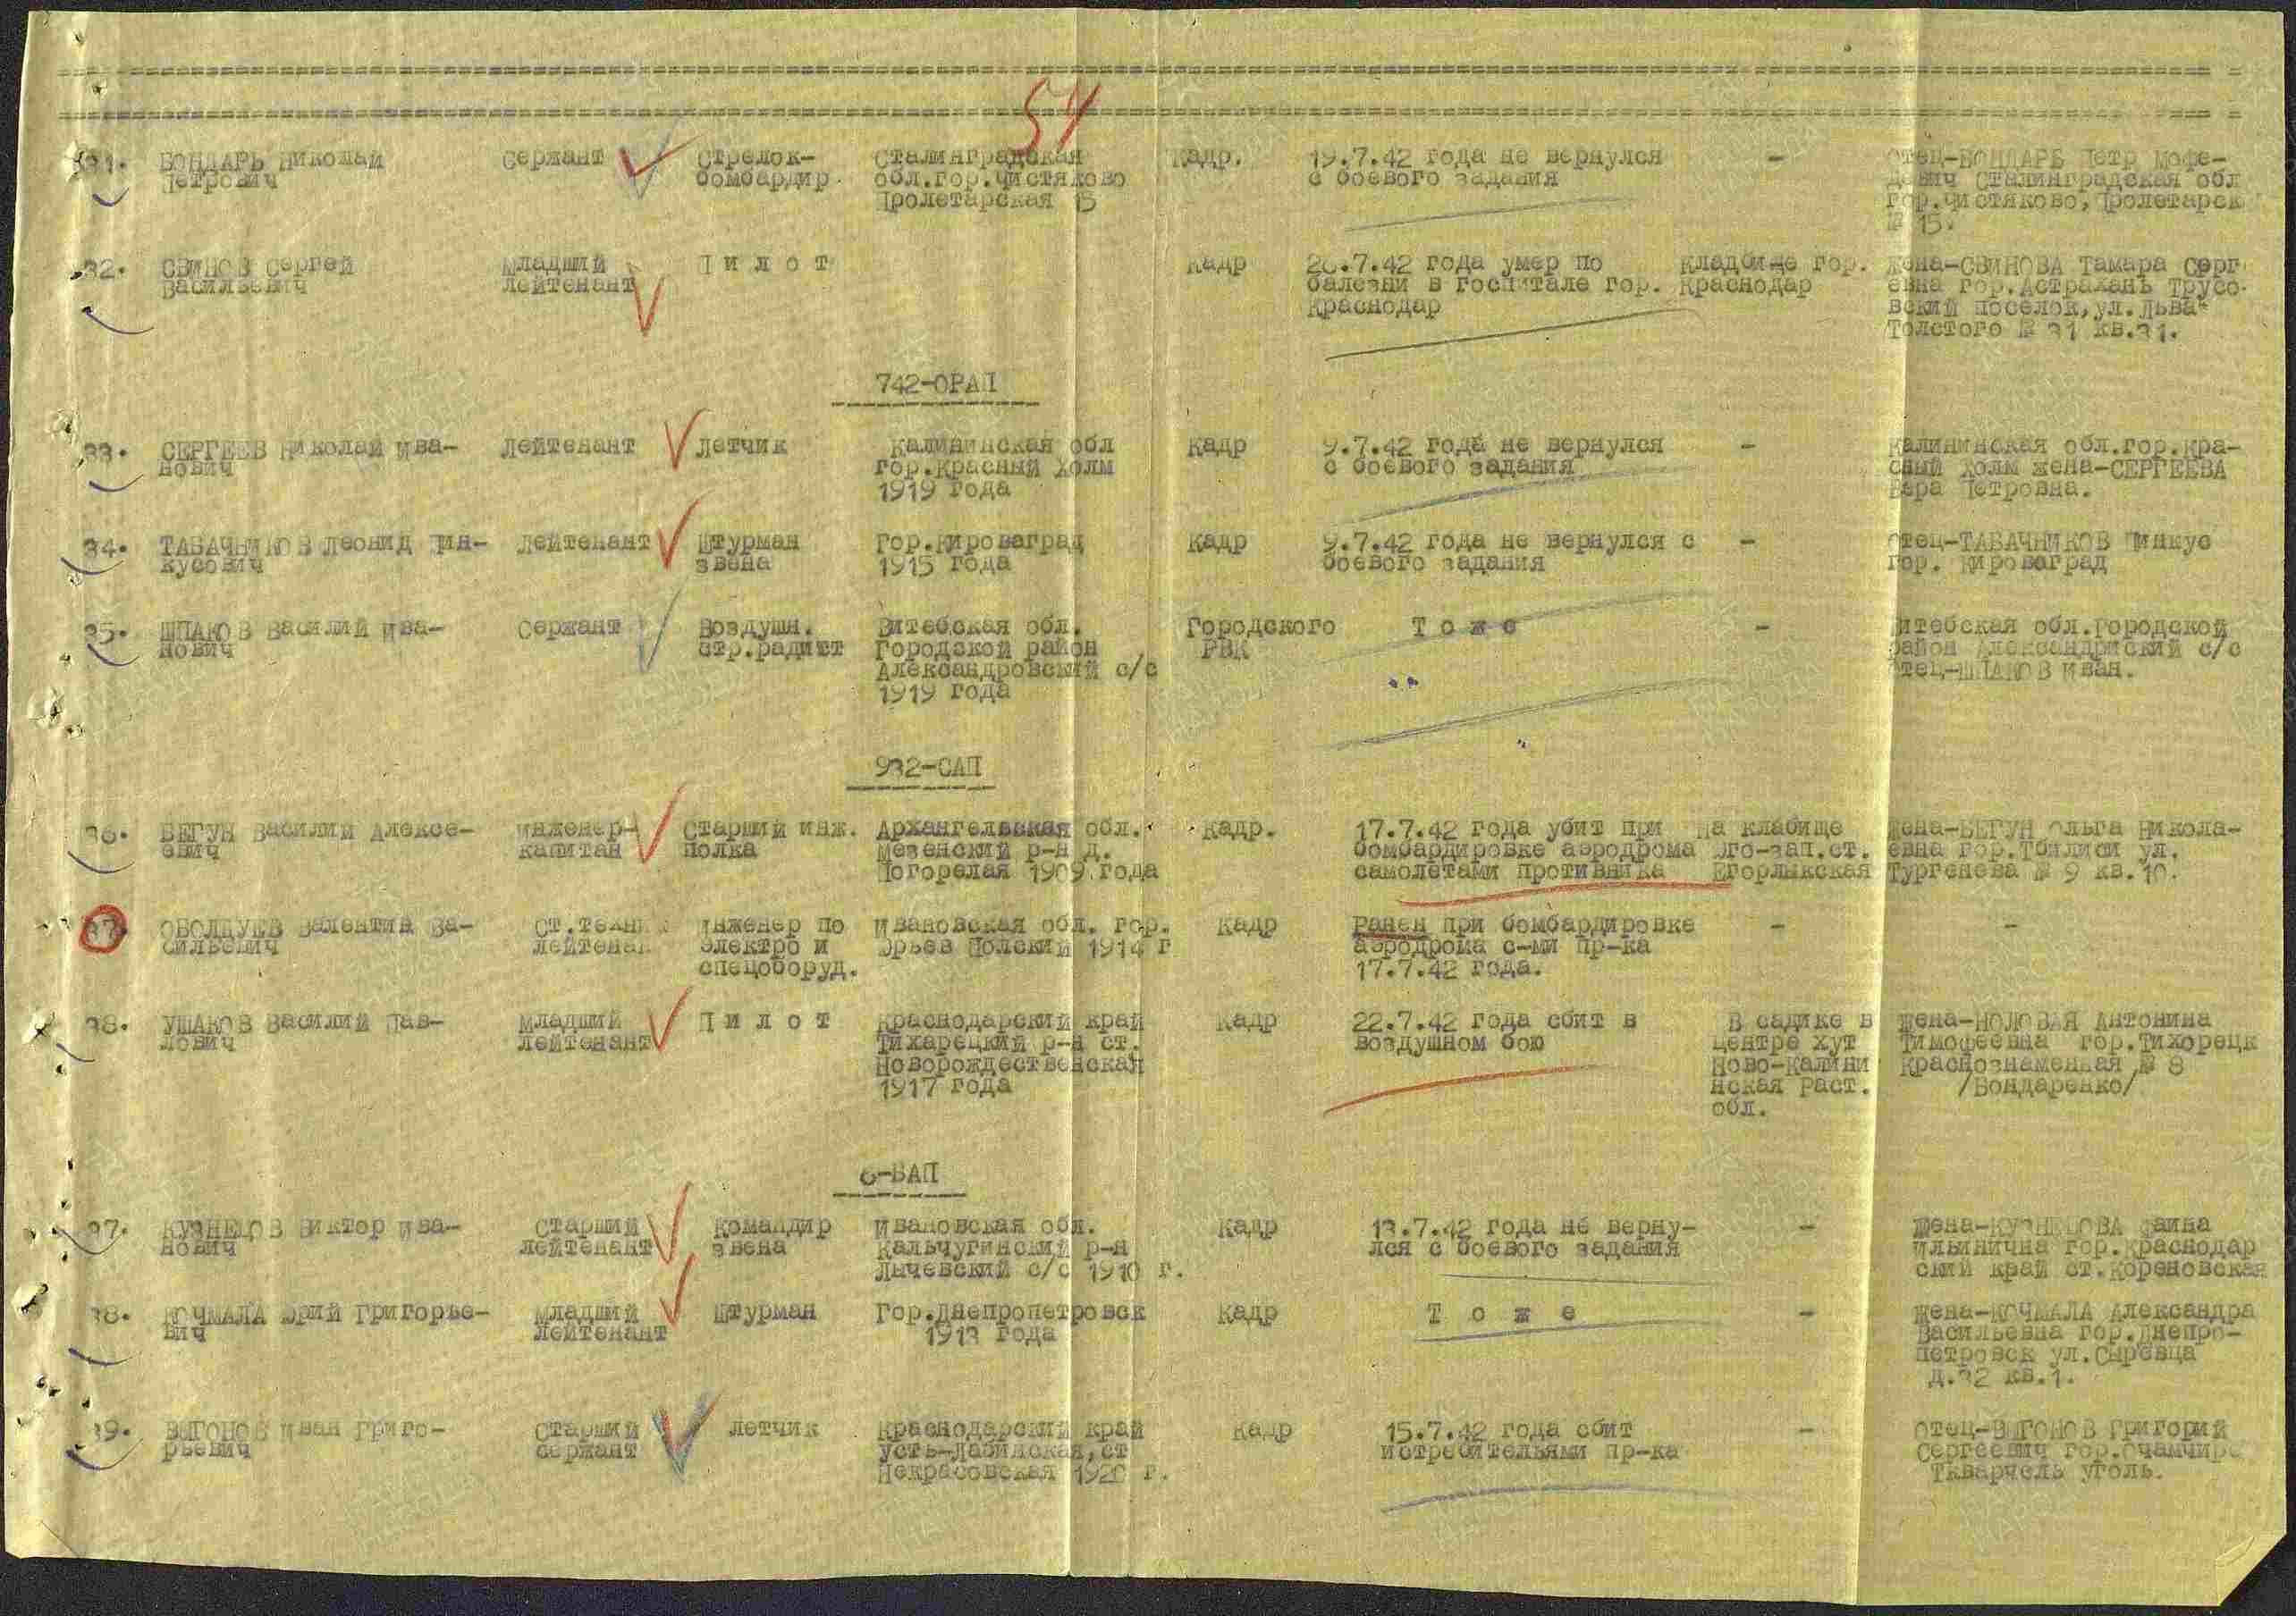 54
31. БОНДАРЬ Николай Сержант Стрелок- Сталинградская Кадр. 19.7.42 года не вернулся - Отец-БОНДАРЬ Петр Мофе-
Петрович бомбардир. обл.гор.Чистяково с боевого задания дович Сталинградская обл
Пролетарская 15 гор.Чистяково, Пролетарск
№ 15.
32. СВИНОВ Сергей Младший П и л о т Кадр 26.7.42 года умер по Кладбище гор. Жена-СВИНОВА Тамара Серг
Васильевич лейтенант балезни в госпитале гор. Краснодар евна гор.Астрахань Трусо-
Краснодар вский поселок,ул.Льва
Толстого № 31 кв.31.
742-ОРАП
33. СЕРГЕЕВ Николай Ива- Лейтенант Летчик Калининская обл Кадр 9.7.42 года не вернулся - Калининская обл.гор.Кра-
нович гор.Красный Холм с боевого задания сный Холм жена-СЕРГЕЕВА
1919 года Вера Петровна.
34. ТАБАЧНИКОВ Леонид Пин- Лейтенант Штурман Гор.Кировоград Кадр 9.7.42 года не вернулся с - Отец-ТАБАЧНИКОВ Пинкус
кусович звена 1915 года боевого задания гор. Кировоград
35. ШПАКОВ Василий Ива- Сержант Воздушн. Витебская обл. Городского Т о ж е - Витебская обл.Городской
нович стр.радист Городской район РВК район Александриский с/с
Александровский с/с отец-ШПАКОВ Иван.
1919 года
932-САП
36. БЕГУН Василий Алексе- Инженер- Старший инж. Архангельская обл. Кадр. 17.7.42 года убит при На клабище Жена-БЕГУН Ольга Никола-
евич капитан полка Мезенский р-н д. бомбардировке аэродрома юго-зап.ст. евна гор.Тбилиси ул.
Погорелая 1909 года самолетами противника Егорлыкская Тургенева № 9 кв.10.
37. ОБОЛДУЕВ Валентин Ва- Ст.техни Инженер по Ивановская обл. гор. Кадр Ранен при бомбардировке - -
сильевич лейтенан электро и Юрьев Полский 1914 г аэродрома с-ми пр-ка
спецоборуд. 17.7.42 года.
38. УШАКОВ Василий Пав- Младший П и л о т Краснодарский край Кадр 22.7.42 года сбит в В садике в Жена-НОЛОВАЯ Антонина
лович лейтенант Тихарецкий р-н ст. воздушном бою центре хут Тимофеевна гор.Тихорецк
Новорождественская Ново-Калини Краснознаменная № 8
1917 года нская Раст. /Бондаренко/
обл.
6-БАП
37. КУЗНЕЦОВ Виктор Ива- Старший Командир Ивановская обл. Кадр 13.7.42 года не верну- - Жена-КУЗНЕЦОВА Фаина
нович лейтенант звена Кальчугинский р-н лся с боевого задания Ильинична гор.Краснодар
Лычевский с/с 1910 г. ский край ст.Кореновская
38. КОЧМАЛА Юрий Григорье- Младший Штурман Гор.Днепропетровск Кадр Т о ж е - Жена-КОЧМАЛА Александра
вич лейтенант 1913 года Васильевна гор.Днепро-
петровск ул.Сыревца
д.32 кв.1.
39. ВЫГОНОВ Иван Григо- Старший Летчик Краснодарский край Кадр 15.7.42 года сбит - Отец-ВЫГОНОВ Григорий
рьевич сержант усть-Лабинская,ст истребительями пр-ка Сергеевич гор.Очамчире
Некрасовская 1920 г. Ткварчель уголь.